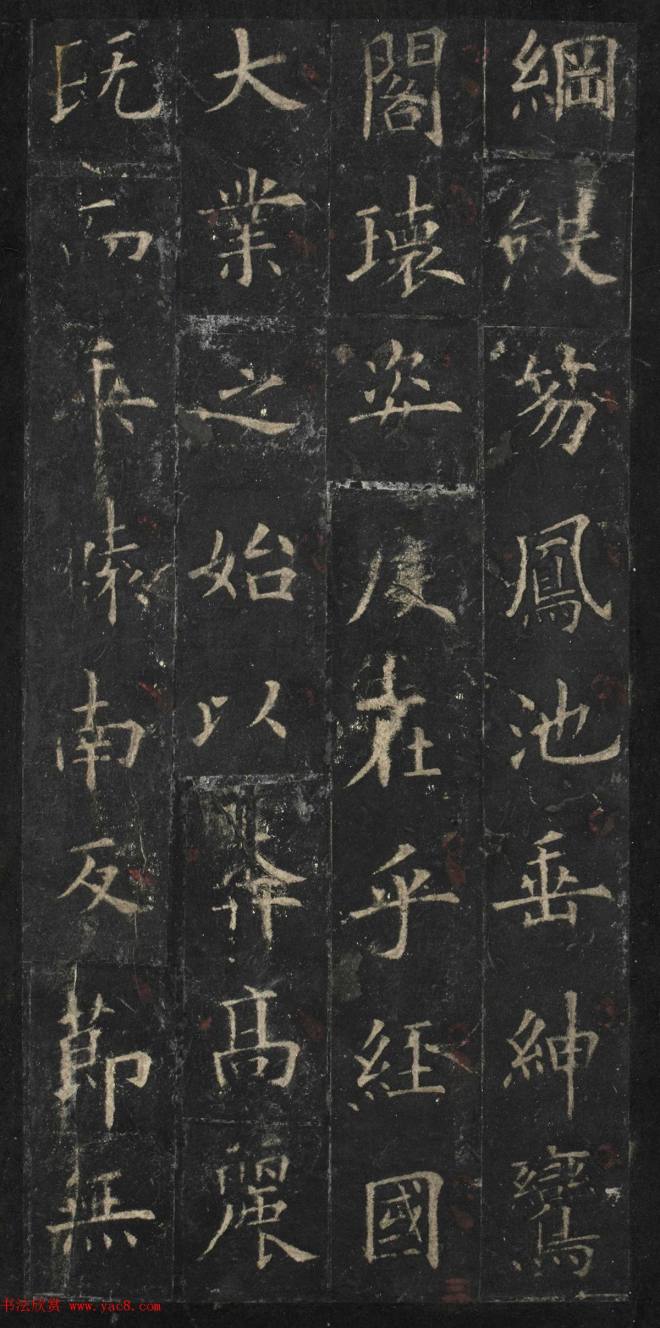 綱笏鳳池垂紳鸞
閣瓌姿度在乎經國
大業之始以高麗
既懷南反節無
书法欣赏 www.yac8.com